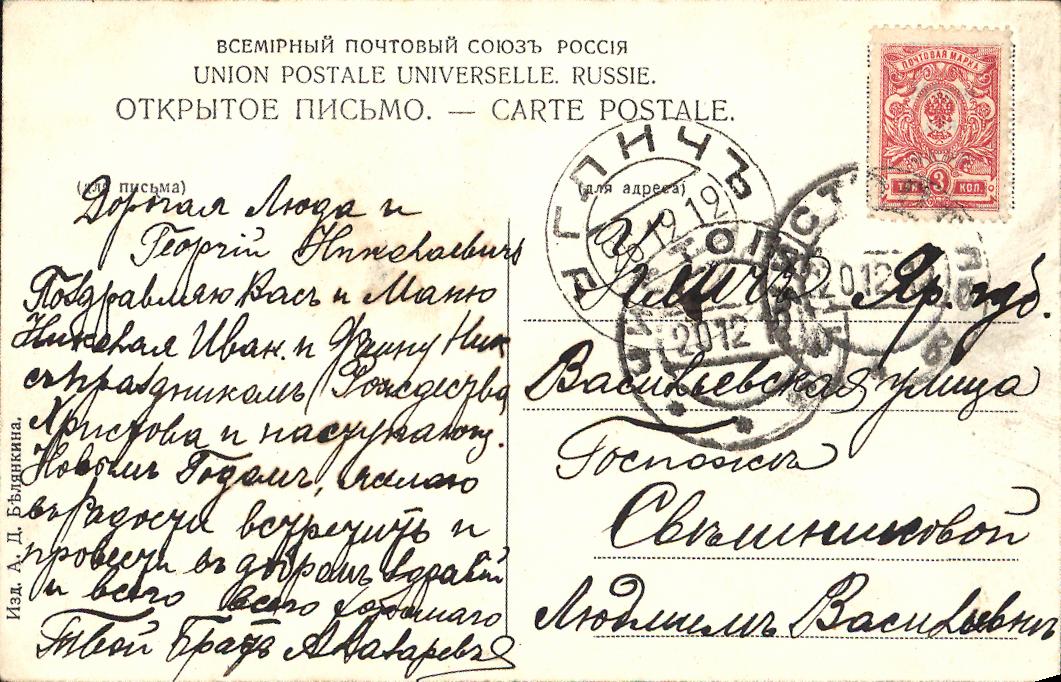 ВСЕМІРНЫЙ ПОЧТОВЫЙ СОЮЗЪ РОССІЯ
UNION POSTALE UNIVERSELLE. RUSSIE.
ОТКРЫТОЕ ПИСЬМО. — CARTE POSTALE.
ПОЧТОВАЯ МАРКА
3 КОП.
(для письма)
Дорогая Люда и
Георгій Николаевичъ
Поздравляю Васъ и Маню
Николая Иван. и Фаину Ник
съ праздникомъ Рождества
Христова и наступающ.
Новымъ Годомъ, желаю
въ радости встретить и
провести въ добромъ здравіи
и всего всего хорошаго
Твой Братъ
(для адреса)
УГЛИЧЪ
20 12 12
20 12
20.12
Угличъ Яр. губ.
Васильевская улица
Госпожѣ
Свѣшниковой
Людмилѣ Васильевнѣ
Изд. А. Д. Бѣлянкина.